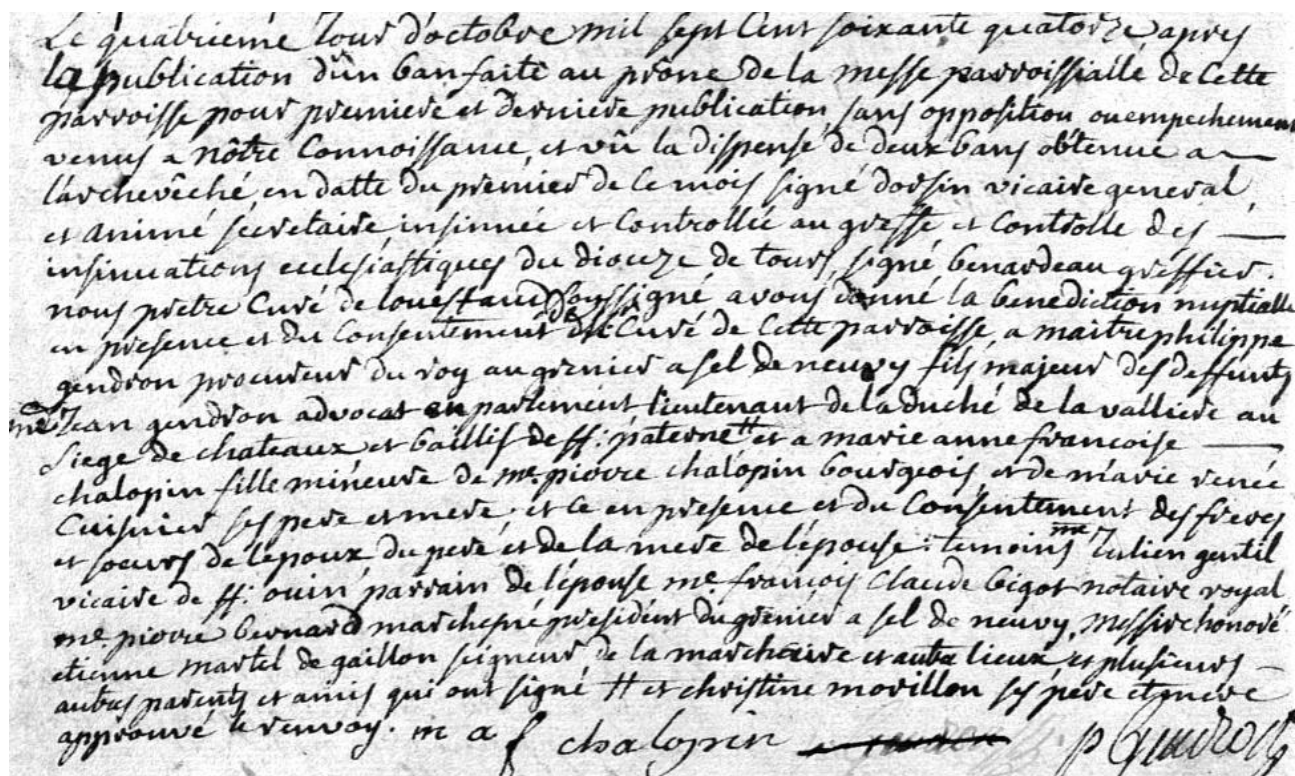 Le quatrieme Jour d'octobre mil sept Cent soixante quatorze apres
la publication d'ûn ban faite au prone de la messe parroissialle de Cette
parroisse pour premiere et derniere publication, sans opposition ou empechement
venus a nôtre Connoissance, et vû la dispense de deux bans obtenue a
l'archevêché, en datte du premier de ce mois signé dorsin vicaire general,
et animé secretaire, insinuée et Controllée au greffe et Controlle des
insinuations ecclesiastiques du diocèze de tours, signé benardeau greffier.
nous pretre Curé de louestault soussigné, avons donné la benediction nuptialle
en presence et du Consentement de Curé de Cette parroisse, a maitre philippe
gendron procureur du roy au grenier a sel de neuvy fils majeur des deffunts
me. Jean gendron advocat en parlement lieutenant de la duché de la valliere au
Siege de chateaux et baillif de st: paterne # et a marie anne francoise
chalopin fille mineure de me. pierre chalopin bourgeois, et de marie renée
Cuisnier ses pere et mere. et ce en presence et du Consentement des freres
et soeurs de lépoux, du pere et de la mere de lépouse: temoins me Julien gentil
vicaire de st: ouin parrain de lépouse me. françois Claude bigot notaire royal
me. pierre bernard marchesné president du grenier a sel de neuvy, messire honoré
etienne martel de gaillon seigneur de la marcherie et autres lieux et plusieurs
autres parents et amis qui ont signé # et christine morillon ses pere et mere
approuvé le renvoy. m a f chalopin p Gendron